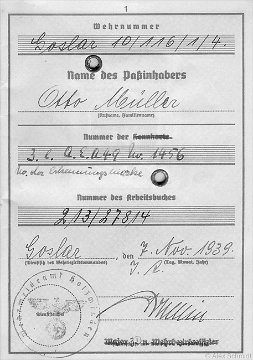 1
Wehrnummer
Goslar 10/116/1/4.
Name des Paßinhabers
Otto Müller
(Rufname, Familienname)
Nummer der Kennkarte
3. E. A.E.A 49 Nr. 1456
No. der Erkennungsmarke
Nummer des Arbeitsbuches
213/27814
Goslar, den 7. Nov. 1939.
(Dienstsitz des Wehrbezirkskommandos) (Tag, Monat, Jahr)
Wehrmeldeamt
(Dienststelle)
Major u. Wehrbezirksoffizier
© Alex Schmidt